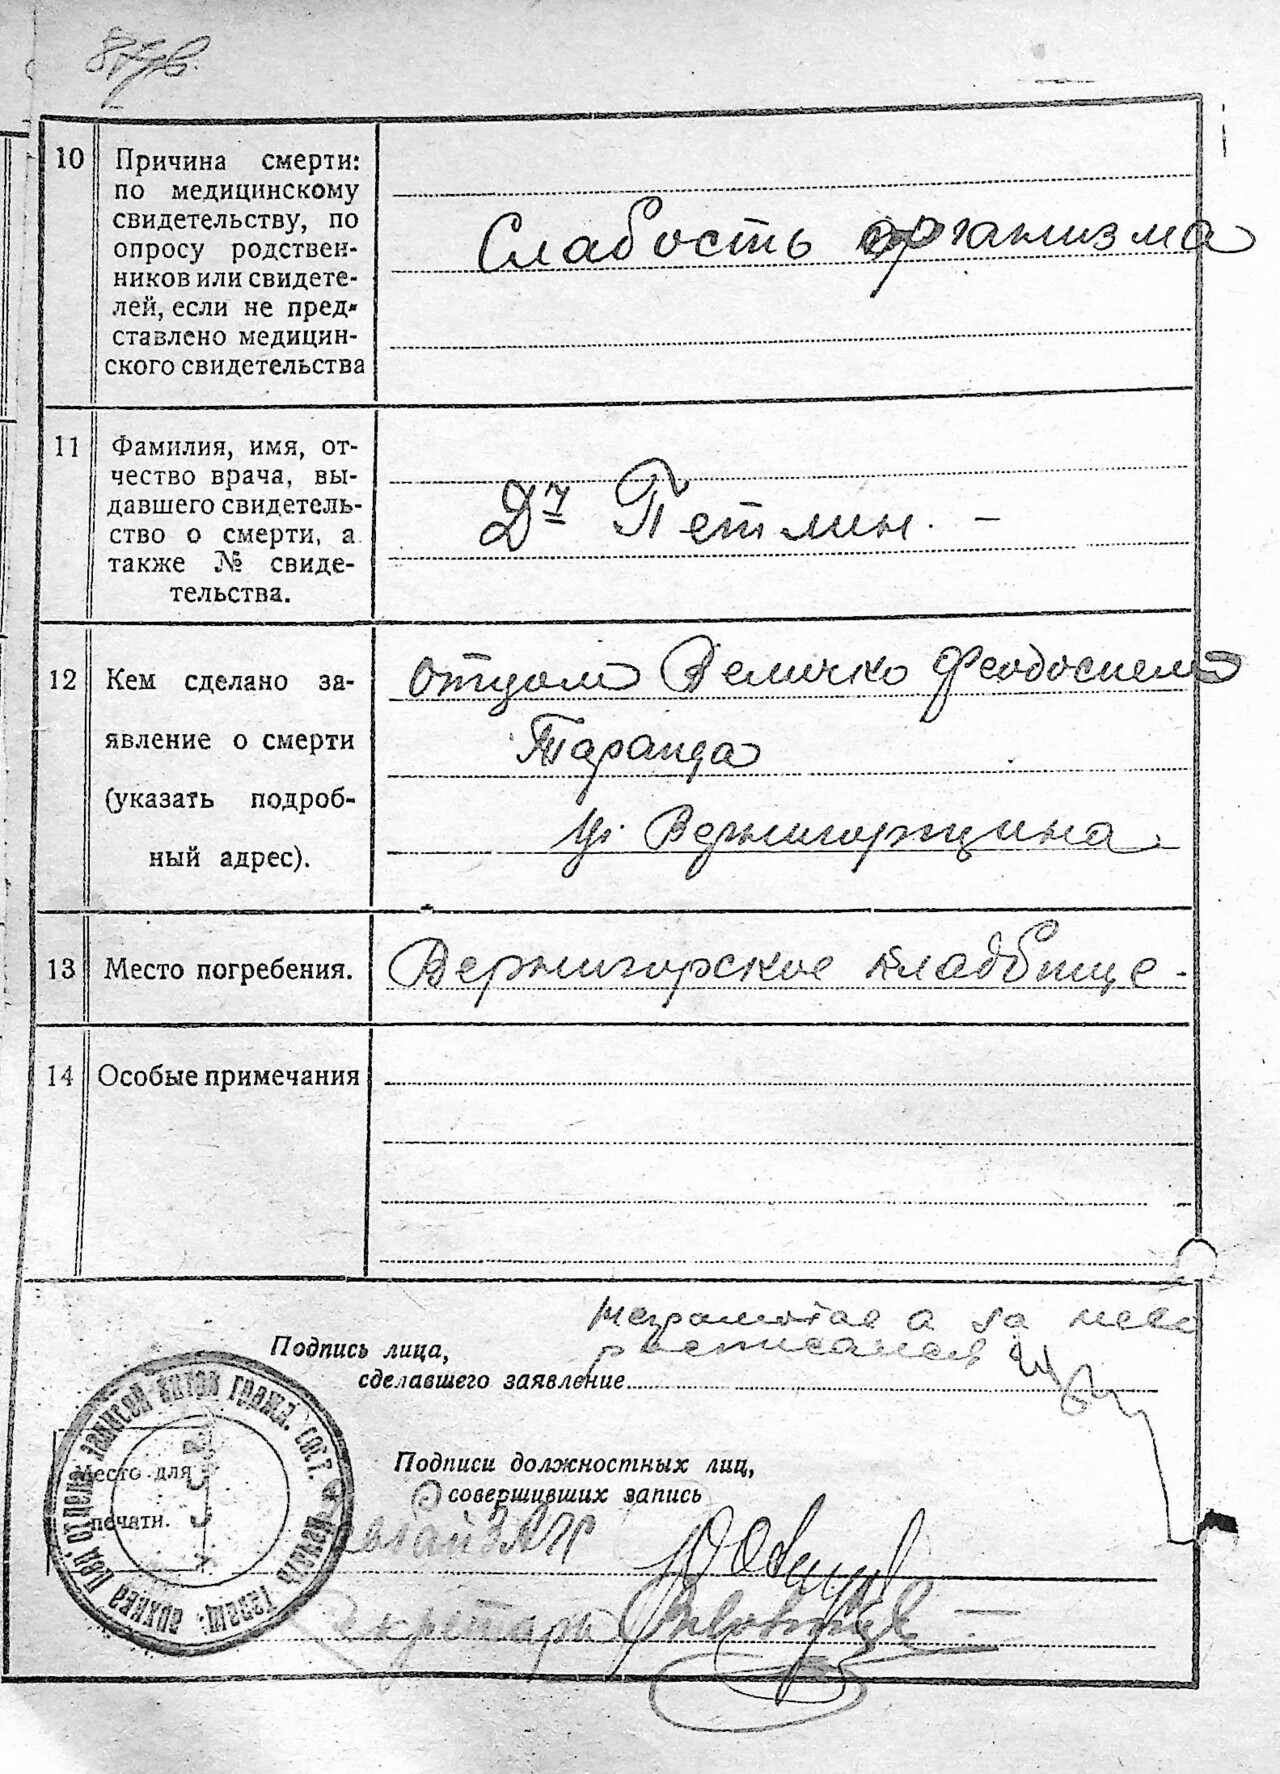 10 Причина смерти:
по медицинскому
свидетельству, по
опросу родствен-
ников или свидете-
лей, если не пред-
ставлено медицин-
ского свидетельства
Слабость организма
11 Фамилия, имя, от-
чество врача, вы-
давшего свидетель-
ство о смерти, а
также № свиде-
тельства.
Др Петлин. -
12 Кем сделано за-
явление о смерти
(указать подроб-
ный адрес).
отцом Величко Феодосием
Тараща
ул. Вернигорщина
13 Место погребения.
Вернигорское кладбище -
14 Особые примечания
неграмотная а за него
росписался
Подпись лица,
сделавшего заявление
Место для
печати.
Подписи должностных лиц,
совершивших запись
ЗАГС
Секретарь